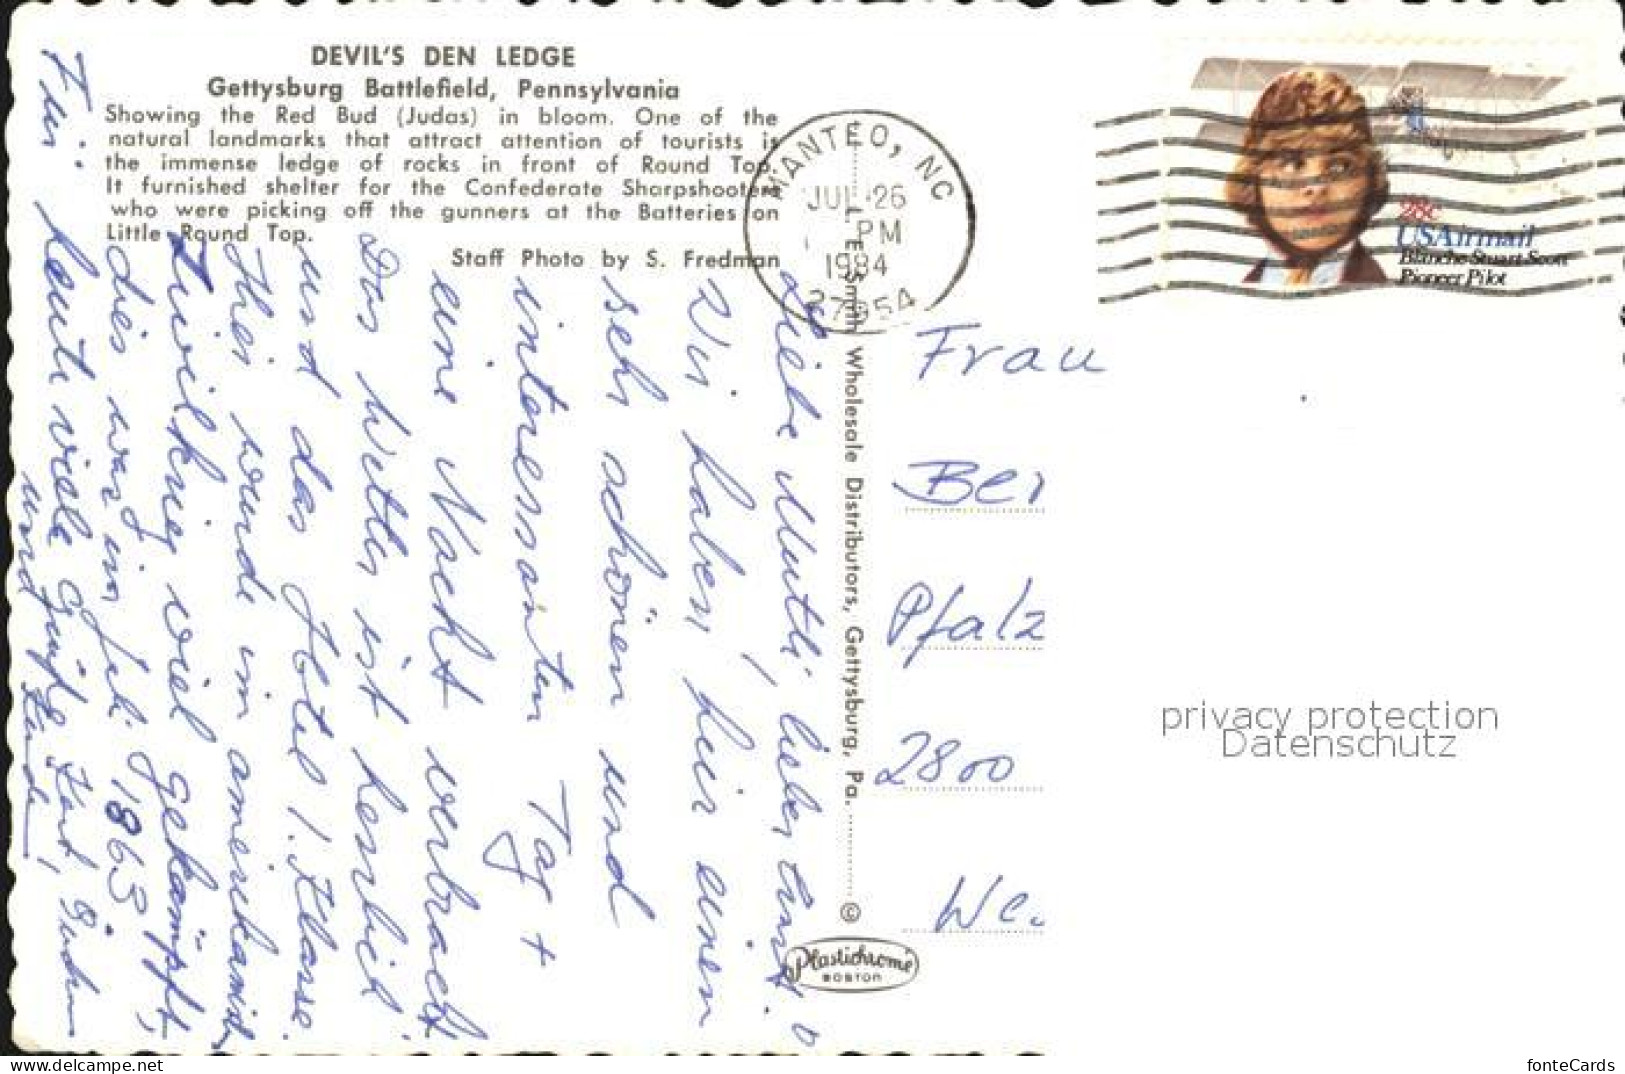 DEVIL'S DEN LEDGE
Gettysburg Battlefield, Pennsylvania
Showing the Red Bud (Judas) in bloom. One of the
natural landmarks that attract attention of tourists is
the immense ledge of rocks in front of Round Top.
It furnished shelter for the Confederate Sharpshooters
who were picking off the gunners at the Batteries on
Little Round Top.
Staff Photo by S. Fredman
MANTEO, NC
JUL 26
PM
1984
27954
28c
USAirmail
Blanche Stuart Scott
Pioneer Pilot
L. E. Smith Wholesale Distributors, Gettysburg, Pa.
©
Plastichrome
BOSTON
Liebe Mutti, lieber
Wir haben hier einen
sehr schönen und
interessanten Tag +
eine Nacht verbracht
Das Wetter ist herrlich
und das Hotel 1. Klasse.
Hier wurde im amerikanisch
viel gekämpft,
dies war im Juli 1863
heute viele Grüße
und
Frau
Ber
Pfalz
2800
We.
privacy protection
Datenschutz
fonteCards